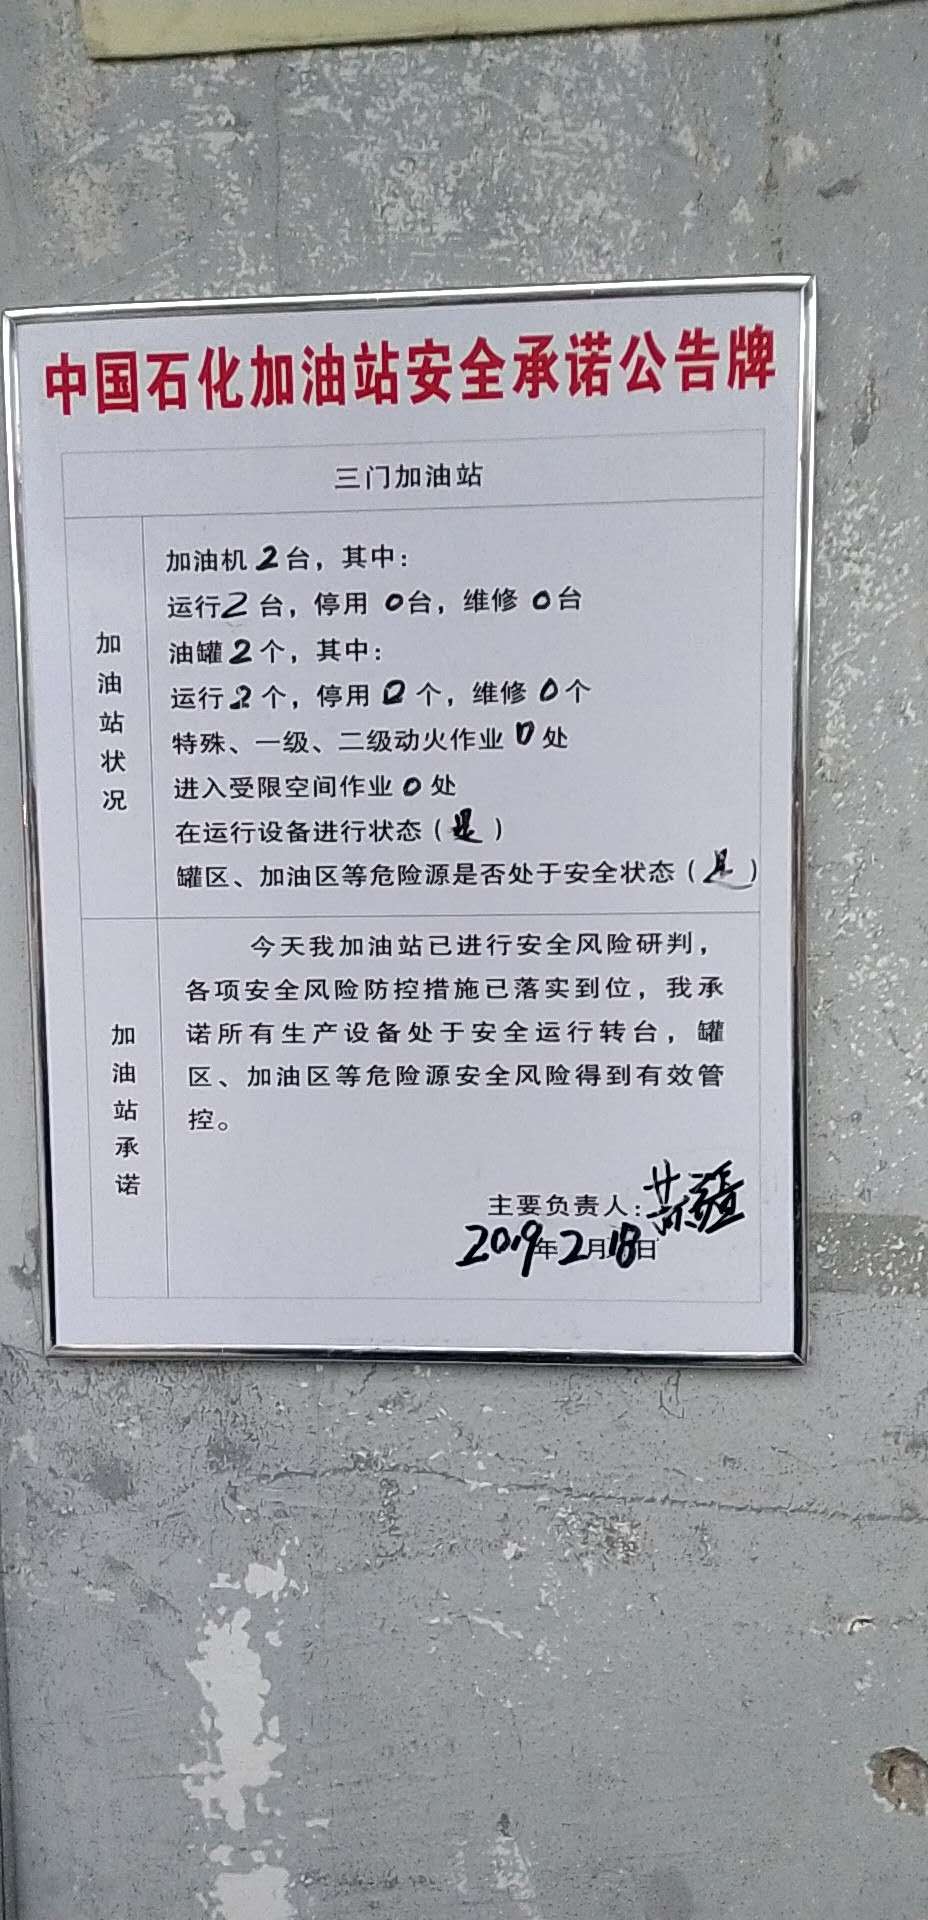 中国石化加油站安全承诺公告牌
三门加油站
加油站状况
加油机2台，其中：
运行2台，停用0台，维修0台
油罐2个，其中：
运行2个，停用0个，维修0个
特殊、一级、二级动火作业0处
进入受限空间作业0处
在运行设备进行状态（是）
罐区、加油区等危险源是否处于安全状态（是）
加油站承诺
今天我加油站已进行安全风险研判，
各项安全风险防控措施已落实到位，我承
诺所有生产设备处于安全运行转台，罐
区、加油区等危险源安全风险得到有效管
控。
主要负责人：
2019年2月18日